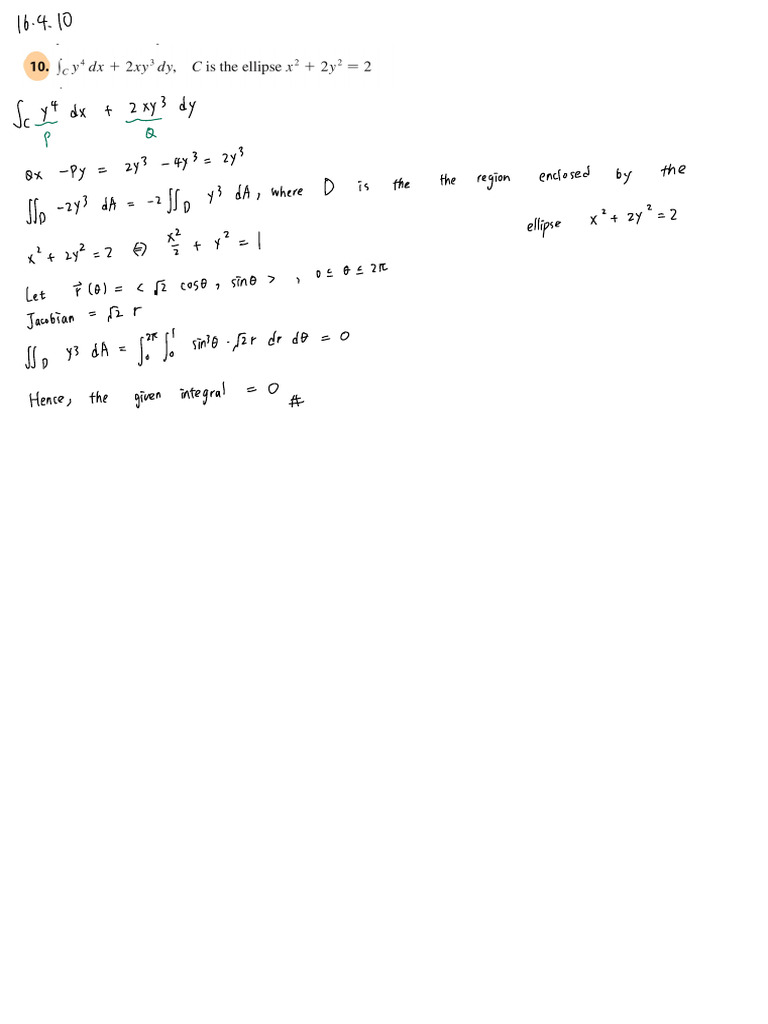 16.4.10
10. ∫_C y⁴ dx + 2xy³ dy, C is the ellipse x² + 2y² = 2
∫_C y⁴ dx + 2xy³ dy
P Q
Qx - Py = 2y³ - 4y³ = 2y³
∬_D -2y³ dA = -2 ∬_D y³ dA, where D is the the region enclosed by the
ellipse x² + 2y² = 2
x² + 2y² = 2 ⇔ x²/2 + y² = 1
Let r⃗(θ) = < √2 cosθ, sinθ >, 0 ≤ θ ≤ 2π
Jacobian = √2 r
∬_D y³ dA = ∫₀^2π ∫₀¹ sin³θ · √2 r dr dθ = 0
Hence, the given integral = 0 #